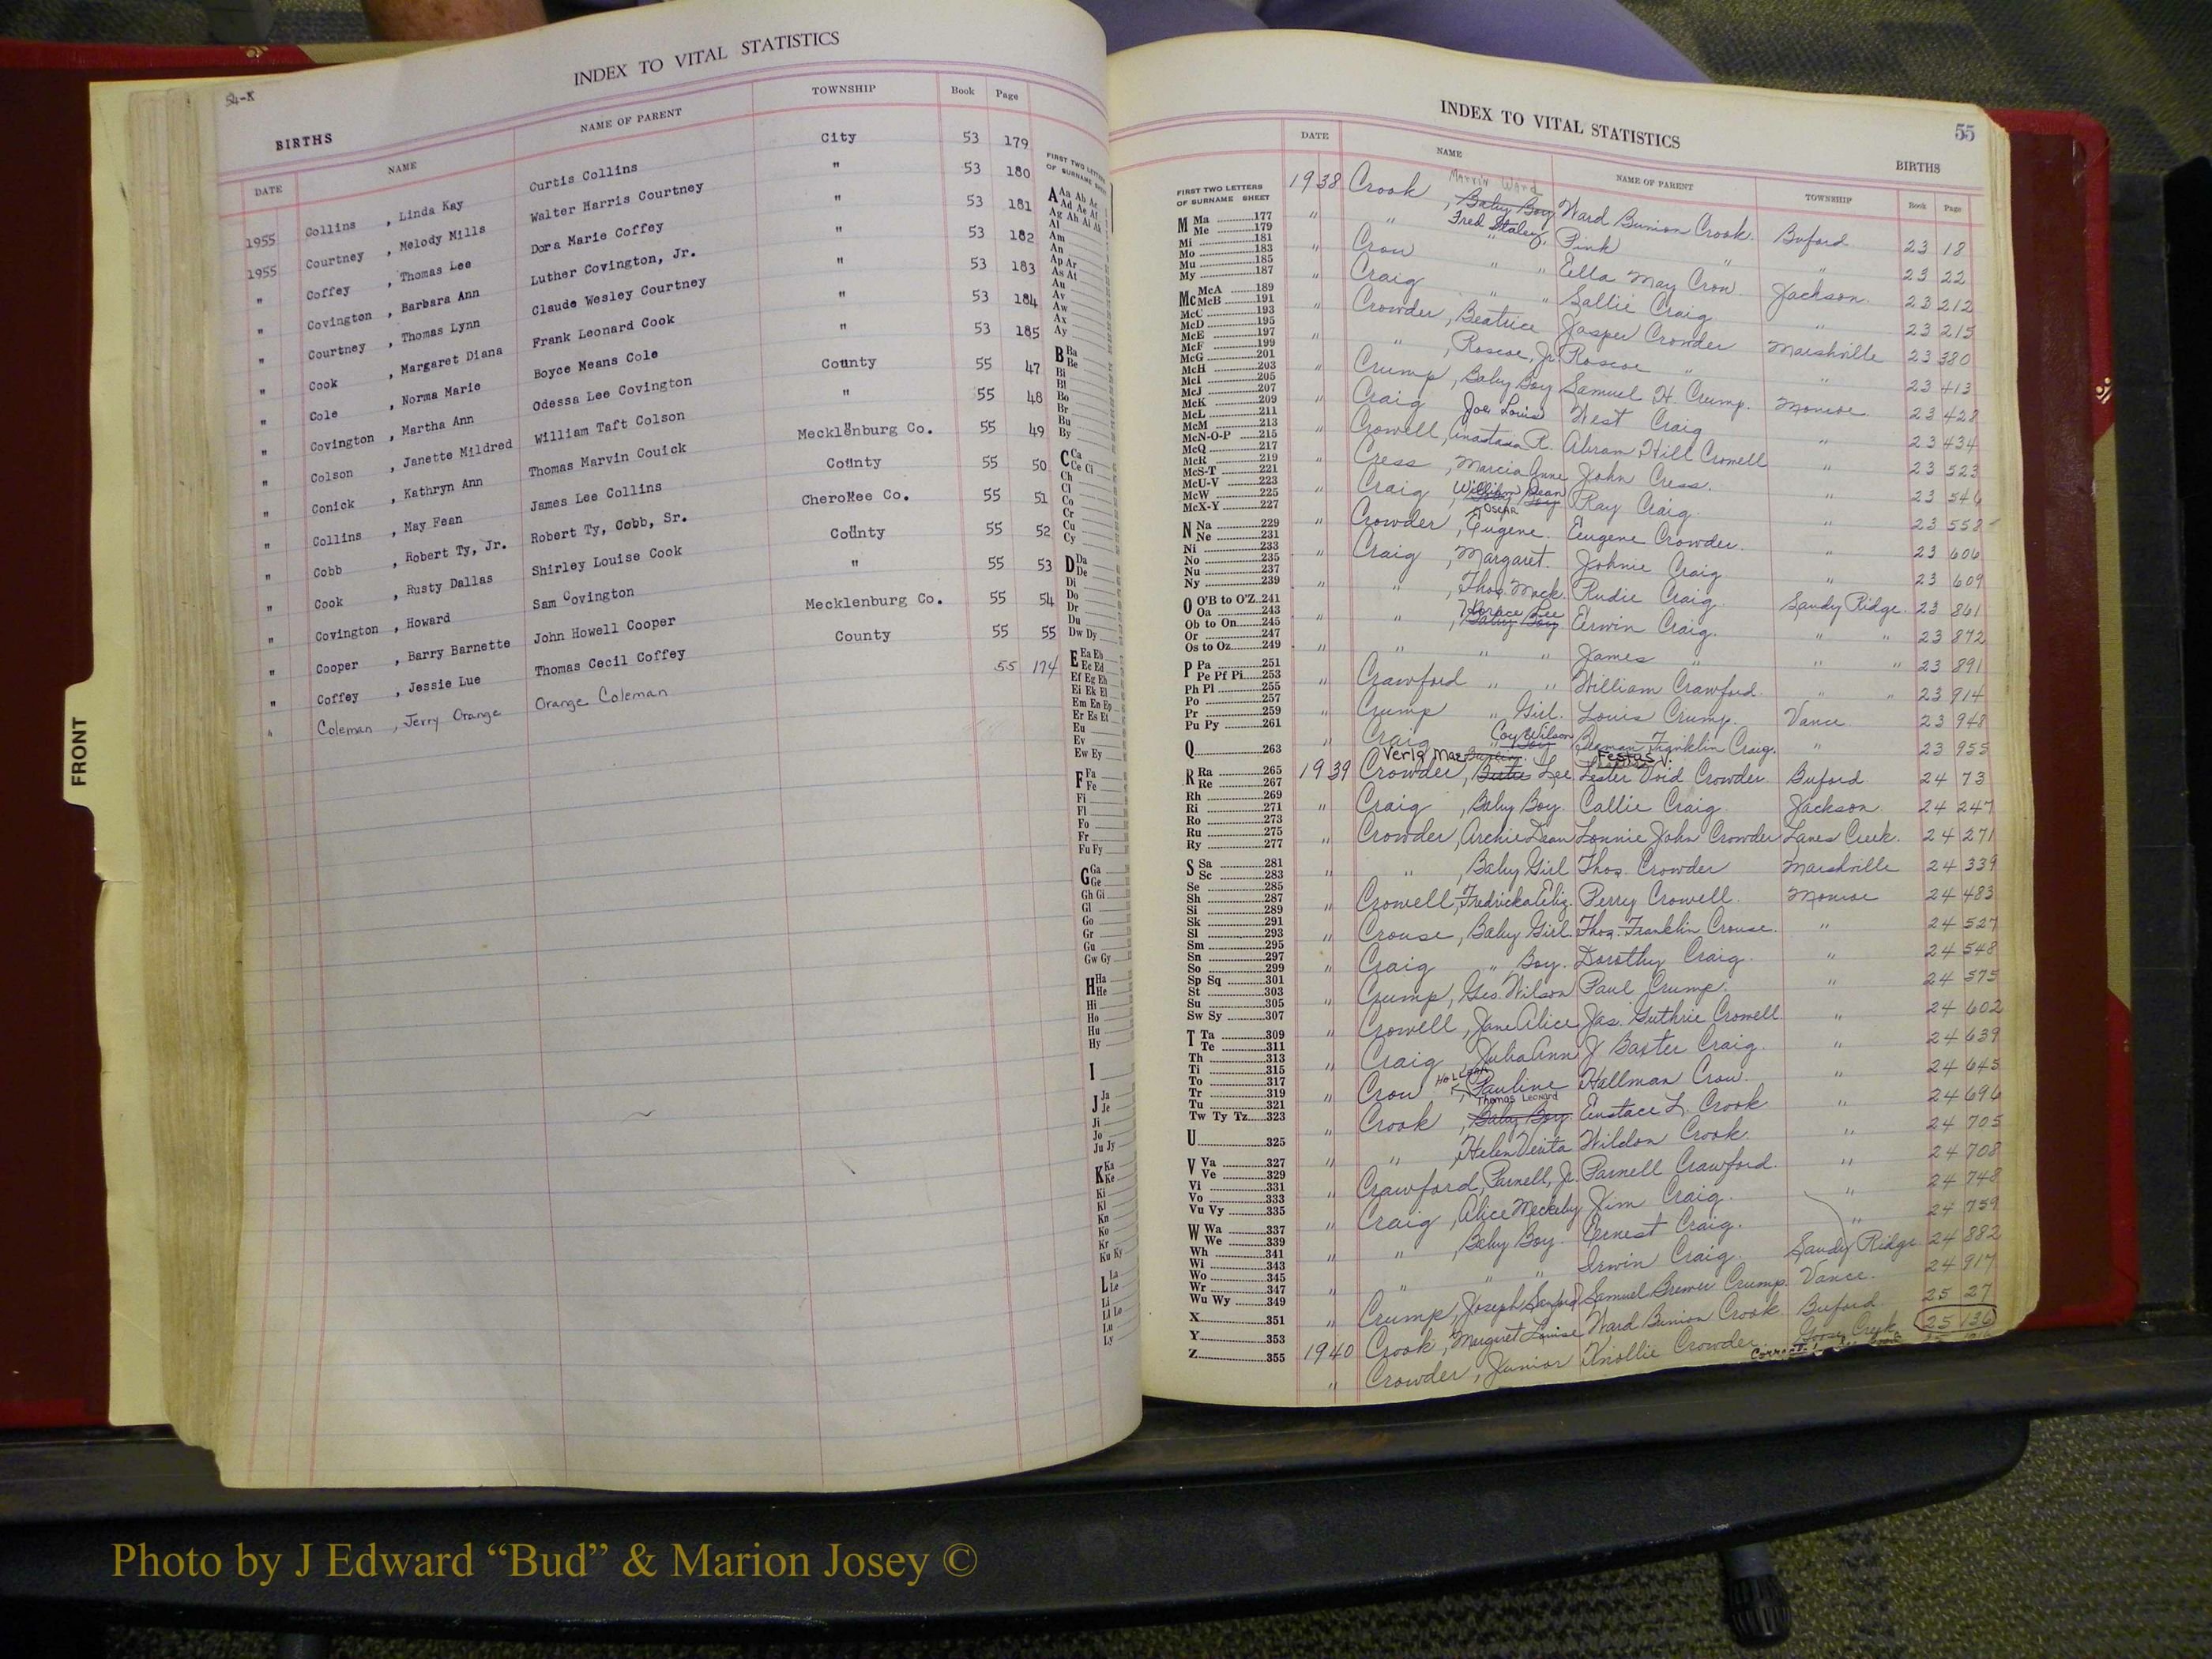 54-K
INDEX TO VITAL STATISTICS
BIRTHS
DATE NAME NAME OF PARENT TOWNSHIP Book Page
1955 Collins , Linda Kay Curtis Collins City 53 179
1955 Courtney , Melody Mills Walter Harris Courtney " 53 180
" Coffey , Thomas Lee Dora Marie Coffey " 53 181
" Covington , Barbara Ann Luther Covington, Jr. " 53 182
" Courtney , Thomas Lynn Claude Wesley Courtney " 53 183
" Cook , Margaret Diana Frank Leonard Cook " 53 184
" Cole , Norma Marie Boyce Means Cole " 53 185
" Covington , Martha Ann Odessa Lee Covington County 55 47
" Colson , Janette Mildred William Taft Colson " 55 48
" Conick , Kathryn Ann Thomas Marvin Couick Mecklenburg Co. 55 49
" Collins , May Fean James Lee Collins County 55 50
" Cobb , Robert Ty, Jr. Robert Ty, Cobb, Sr. Cherokee Co. 55 51
" Cook , Rusty Dallas Shirley Louise Cook County 55 52
" Covington , Howard Sam Covington " 55 53
" Cooper , Barry Barnette John Howell Cooper Mecklenburg Co. 55 54
" Coffey , Jessie Lue Thomas Cecil Coffey County 55 55
" Coleman , Jerry Orange Orange Coleman 55 174
FRONT
FIRST TWO LETTERS
OF SURNAME SHEET
A Aa Ab Ac
Ad Ae Af
Ag Ah Ai Ak
Al
Am
An
Ap Ar
As At
Au
Av
Aw
Ax
Ay
B Ba
Be
Bi
Bl
Bo
Br
Bu
By
C Ca
Ce Ci
Ch
Cl
Co
Cr
Cu
Cy
D Da
De
Di
Do
Dr
Du
Dw Dy
E Ea Eb
Ec Ed
Ef Eg Eh
Ei Ek El
Em En Ep
Er Es Et
Eu
Ev
Ew Ey
F Fa
Fe
Fi
Fl
Fo
Fr
Fu Fy
G Ga
Ge
Gh Gi
Gl
Go
Gr
Gu
Gw Gy
H Ha
He
Hi
Ho
Hu
Hy
I
J Ja
Je
Ji
Jo
Ju Jy
K Ka
Ke
Ki
Kl
Kn
Ko
Kr
Ku Ky
L La
Le
Li
Ll Lo
Lu
Ly
55
INDEX TO VITAL STATISTICS
BIRTHS
DATE NAME NAME OF PARENT TOWNSHIP Book Page
FIRST TWO LETTERS
OF SURNAME SHEET
M Ma 177
Me 179
Mi 181
Mo 183
Mu 185
My 187
Mc McA 189
McB 191
McC 193
McD 195
McE 197
McF 199
McG 201
McH 203
McI 205
McJ 207
McK 209
McL 211
McM 213
McN-O-P 215
McQ 217
McR 219
McS-T 221
McU-V 223
McW 225
McX-Y 227
N Na 229
Ne 231
Ni 233
No 235
Nu 237
Ny 239
O O'B to O'Z 241
Oa 243
Ob to On 245
Or 247
Os to Oz 249
P Pa 251
Pe Pf Pi 253
Ph Pl 255
Po 257
Pr 259
Pu Py 261
Q 263
R Ra 265
Re 267
Rh 269
Ri 271
Ro 273
Ru 275
Ry 277
S Sa 281
Sc 283
Se 285
Sh 287
Si 289
Sk 291
Sl 293
Sm 295
Sn 297
So 299
Sp Sq 301
St 303
Su 305
Sw Sy 307
T Ta 309
Te 311
Th 313
Ti 315
To 317
Tr 319
Tu 321
Tw Ty Tz 323
U 325
V Va 327
Ve 329
Vi 331
Vo 333
Vu Vy 335
W Wa 337
We 339
Wh 341
Wi 343
Wo 345
Wr 347
Wu Wy 349
X 351
Y 353
Z 355
Marvin Ward
1938 Crook , Baby Boy Ward Bunion Crook. Buford 23 18
" " Fred Staley, Pink " " 23 22
" Crow " " Ella May Crow. Jackson. 23 212
" Craig " " Sallie Craig " 23 215
" Crowder, Beatrice Jasper Crowder Marshville 23 380
" " , Roscoe, Jr. Roscoe " " 23 413
" Crump, Baby Boy Samuel H. Crump. Monroe 23 428
" Craig Joe Louis West Craig " 23 434
" Crowell, R. Abram Hill Crowell " 23 523
" Cress , Marcia Anne John Cress. " 23 546
" Craig William Dean Ray Craig. " 23 558
OSCAR
" Crowder , Eugene. Eugene Crowder. " 23 606
" Craig , Margaret. Johnie Craig " 23 609
" " , Thos. Mack. Rudie Craig. Sandy Ridge. 23 861
" " , Horace Lee Baby Boy Erwin Craig. " " 23 872
" " " " James " " " 23 891
" Crawford " " William Crawford. " " 23 914
" Crump " Girl. Louis Crump. Vance 23 948
" Craig Coy Wilson Franklin Craig. " 23 955
Verla Mae Festas V.
1939 Crowder, Lee Lester Void Crowder Buford 24 73
" Craig , Baby Boy. Callie Craig Jackson. 24 247
" Crowder, Archie Dean Lonnie John Crowder Lanes Creek. 24 271
" " , Baby Girl Thos. Crowder Marshville 24 339
" Crowell, Fredricka Eliz. Perry Crowell. Monroe 24 483
" Crouse, Baby Girl. Thos. Franklin Crouse. " 24 527
" Craig " Boy. Dorothy Craig. " 24 548
" Crump, Geo. Wilson Paul Crump. " 24 575
" Crowell, Jane Alice Jas. Guthrie Crowell. " 24 602
" Craig Julia Ann J. Baxter Craig. " 24 639
" Crow Pauline Hallman Crow. " 24 645
Thomas Leonard
" Crook , Baby Boy. Eustace L. Crook " 24 696
" " , Helen Wildon Crook. " 24 705
" Crawford, Parnell, Jr. Parnell Crawford. " 24 708
" Craig , Alice Jim Craig. " 24 748
" " , Baby Boy. Ernest Craig. " 24 759
" " " Irwin Craig. Sandy Ridge 24 882
" Crump, Joseph Sanford Samuel Brewer Crump. Vance. 24 917
1940 Crook, Margaret Louise Ward Bunion Crook Buford 25 27
" Crowder, Junior Knollie Crowder. Goose Creek 25 136
Photo by J Edward “Bud” & Marion Josey ©